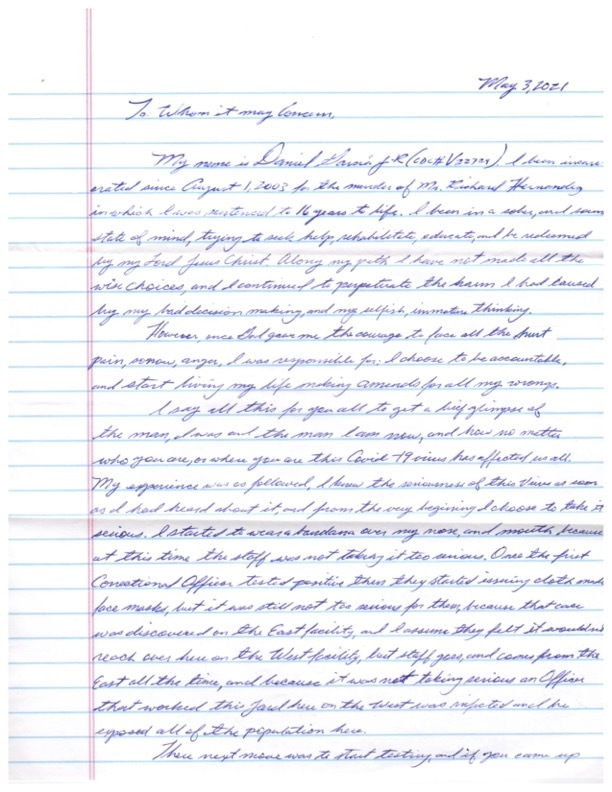 May 3, 2021
To: Whom it may Concern,
My name is Daniel Garcia JR (CDC# V32729). I been incarc
erated since August 1, 2003 for the murder of Mr. Richard Hernandez
in which I was sentenced to 16 years to life. I been in a sober, and sound
state of mind, trying to seek help, rehabilitate, educate, and be redeemed
by my Lord Jesus Christ. Along my path I have not made all the
wise choices, and I continued to perpetuate the harm I had caused
by my bad decision making, and my selfish, immature thinking.
However, once God gave me the courage to face all the hurt
pain, sorrow, anger, I was responsible for; I choose to be accountable,
and start living my life making amends for all my wrongs.
I say all this for you all to get a brief glimpse of
the man, I was and the man I am now, and how no matter
who you are, or where you are this Covid-19 virus has affected us all.
My experience was as followed, I knew the seriousness of this Virus as soon
as I had heard about it, and from the very begining I choose to take it
serious. I started to wear a bandana over my nose, and mouth, because
at this time the staff was not taking it too serious. Once the first
Correctional Officer tested positive then they started issuing cloth made
face masks, but it was still not too serious for them, because that case
was discovered on the East facility, and I assume they felt it would not
reach over here on the West facility, but staff goes, and comes from the
East all the time, and because it was not taking serious an Officer
that worked this yard here on the West was infected and he
exposed all of the population here.
There next move was to start testing, and if you came up